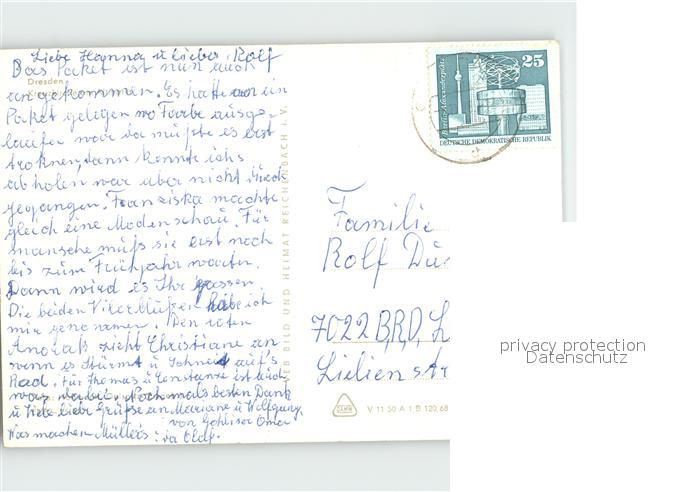 Liebe Hanna u lieber Rolf
Das Paket ist nun auch
angekommen. Es hatte an ein
Paket gelegen wo Farbe ausge-
laufen war da mußte es erst
troknen, dann konnte ichs
abholen war aber nicht
gegangen. Franziska machte
gleich eine Modenschau. Für
mansche muß sie erst noch
bis zum Frühjahr warten.
Dann wird es Ihr passen.
Die beiden habe ich
mir genommen. Den roten
Anorak zieht Christiane an
wenn es stürmt u schneit auf's
Rad. Für Thomas u Constanze ist auch
was dabei. Nochmals besten Dank
u viele liebe Grüße an Mariane u Wolfgang,
von Gohliser Oma
Was machen Müller's
Dresden
VEB BILD UND HEIMAT REICHENBACH I. V.
25
Berlin-Alexanderplatz
DEUTSCHE DEMOKRATISCHE REPUBLIK
Familie
Rolf
7022 BRD, L
Lilienstr
V 11 50 A 1 B 120, 68
privacy protection
Datenschutz